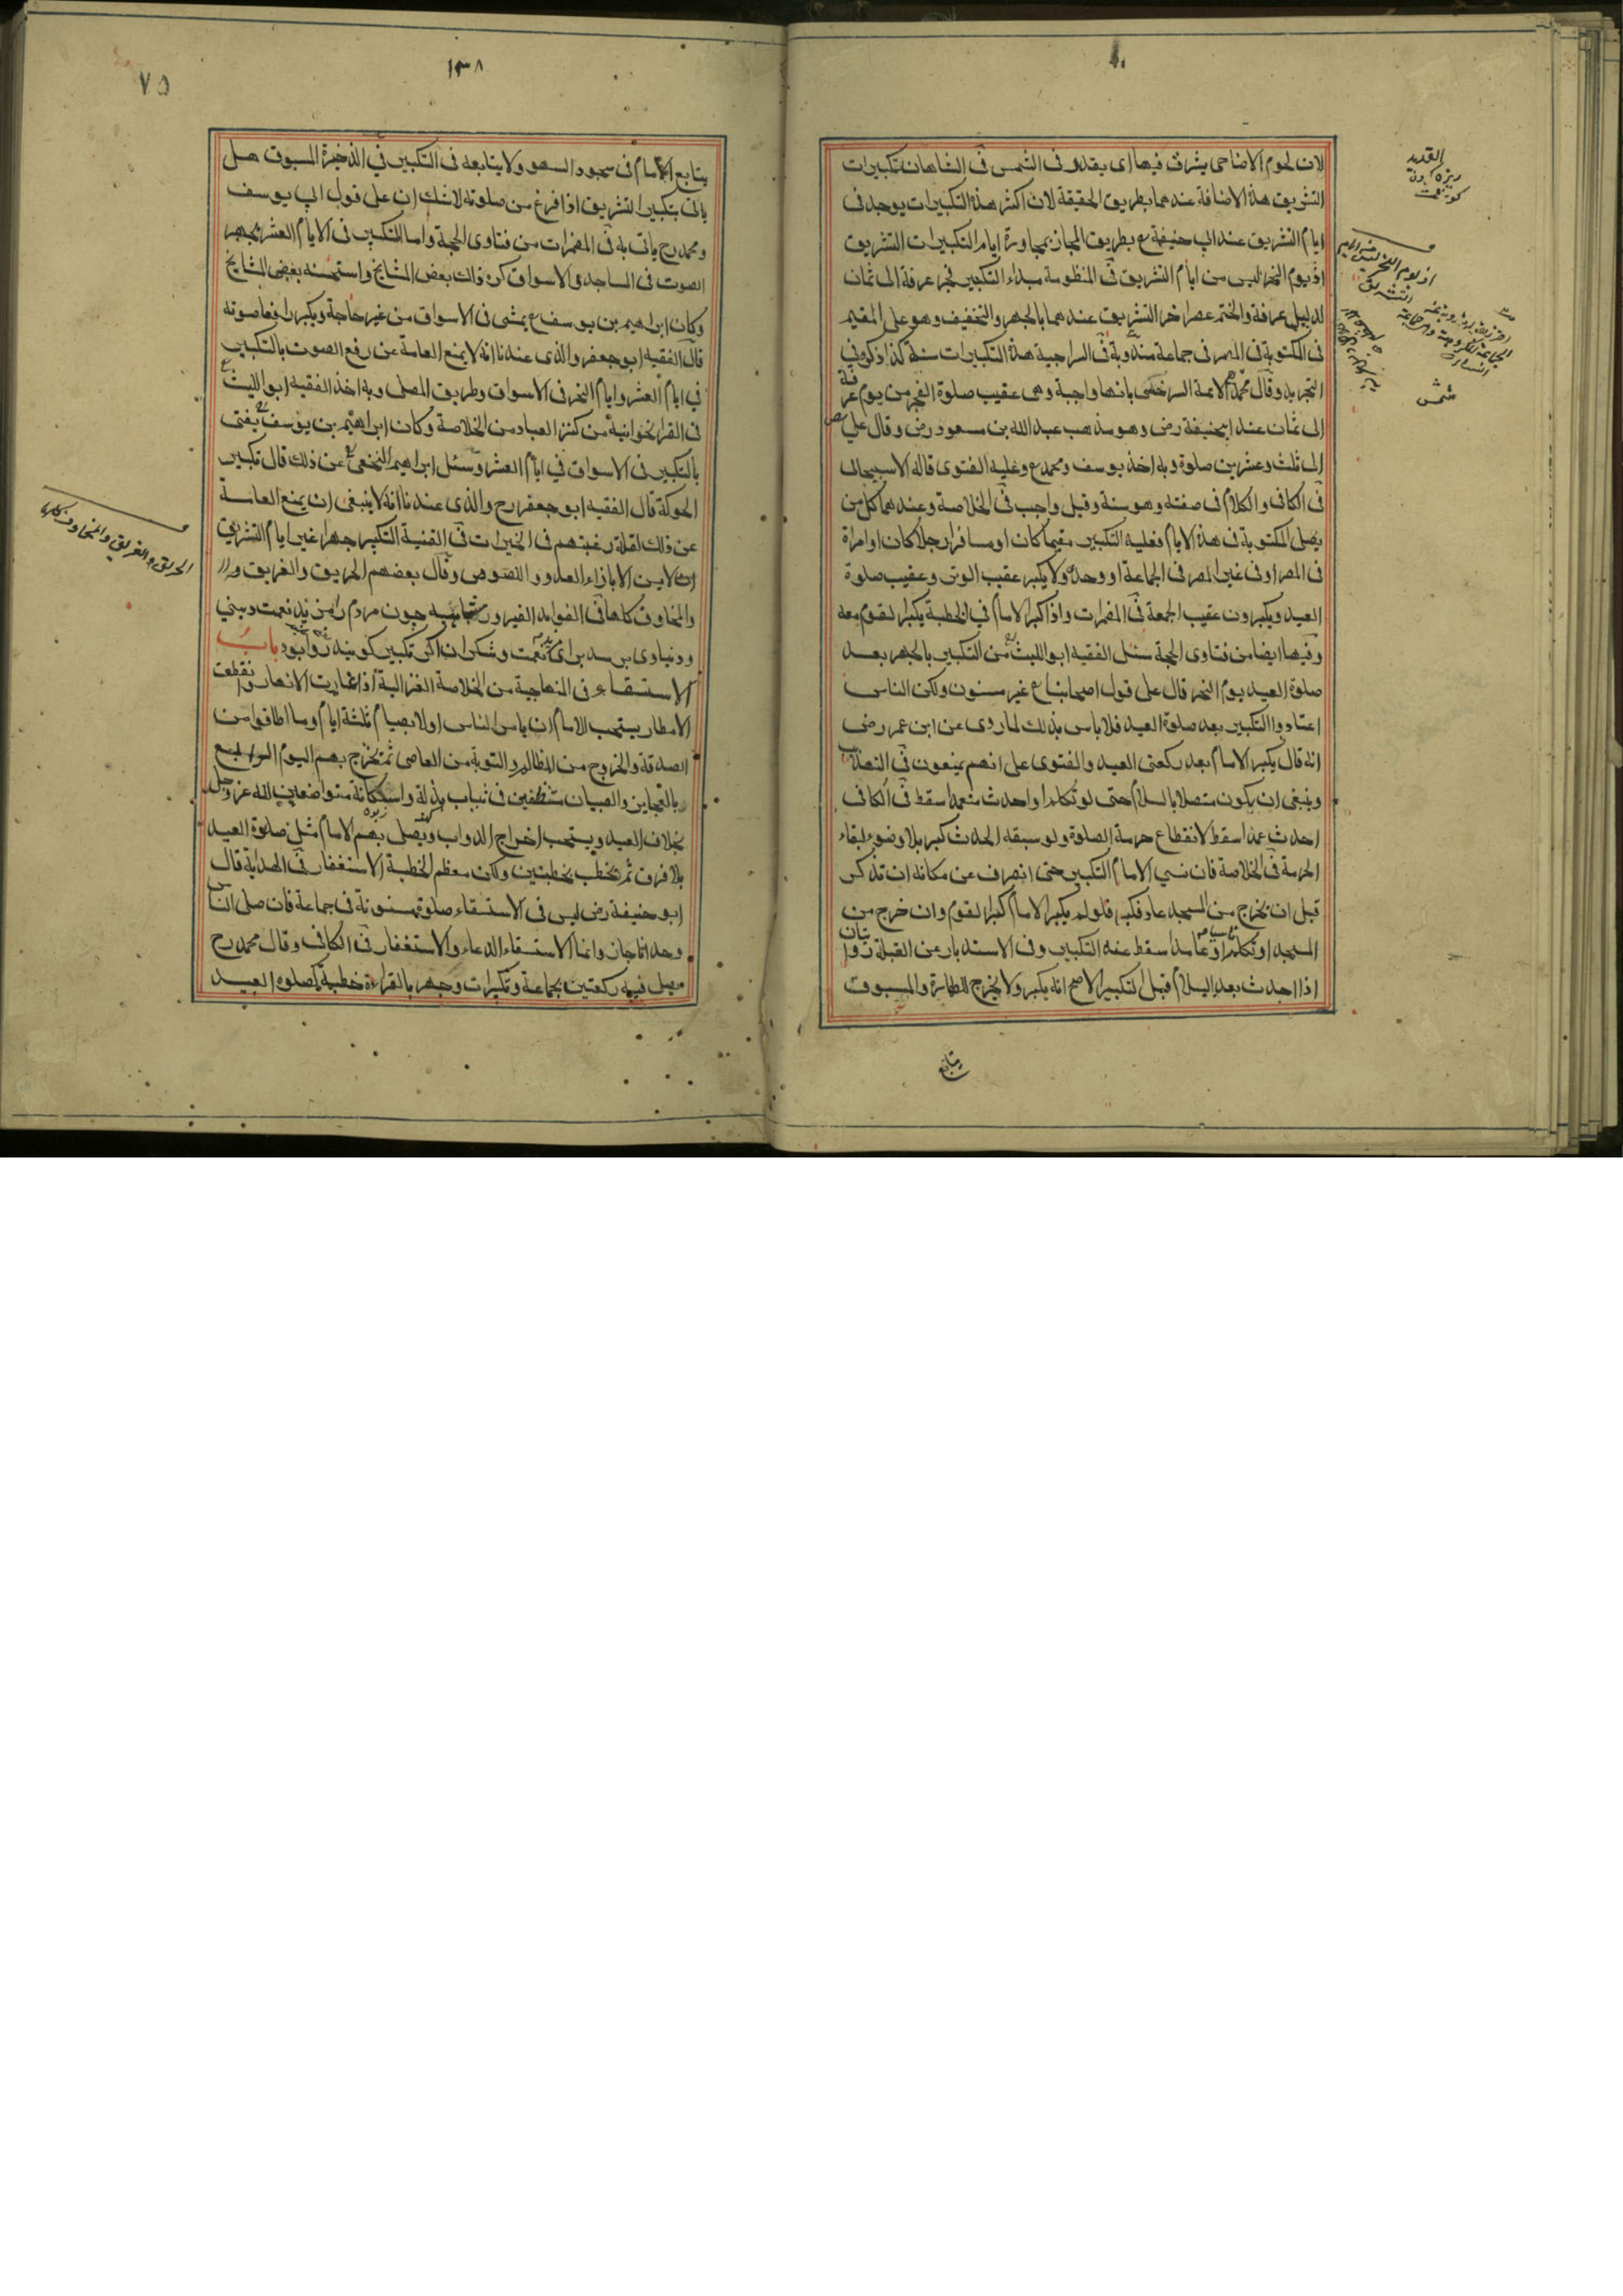 لان لحوم الاضاحى يشرق فيها اى يقدد فى الشمس فى الشاهان تكبيرات
التشريق هذه الاضافة عندهما بطريق الحقيقة لان اكثر هذه التكبيرات يوجد فى
ايام التشريق عند ابي حنيفة ع بطريق المجاز بمجاورة ايام التكبيرات التشريق
اذ يوم النحر ليس من ايام التشريق فى المنظومة مبداء التكبير فجر عرفة الى ثمان
عرفة والختم عصر اخر التشريق عندهما بالجهر والتخفيف وهو على المقيم
فى المكتوبة فى المصر فى جماعة مندوبة فى السراجية هذه التكبيرات سنة كذا ذكره فى
التجريد وقال الائمة السرخسى بانها واجبة وهى عقيب صلوة الفجر من يوم عرفة
الى ثمان عند ابيحنيفة رض وهو مذهب عبد الله بن مسعود رض وقال على رض
الى ثلث وعشرين صلوة وبه اخذ بوسف ومحمد ع وعليه الفتوى قاله الاسبيجابى
فى الكافى والكلام فى صفته وهو سنة وقيل واجب فى الخلاصة وعندهما كل من
يصلى المكتوبة فى هذه الايام فعليه التكبير مقيما كان او مسافرا رجلا كان او امراة
فى المصر او فى غير المصر فى الجماعة او وحده ولا يكبر عقيب الوتر وعقيب صلوة
العيد ويكبرون عقيب الجمعة فى المضمرات واذا كبر الامام فى الخطبة يكبر القوم معه
وفيها ايضا من فتاوى الحجة سئل الفقيه ابو الليث ع من التكبير بالجهر بعد
صلوة العيد يوم النحر قال على قول اصحابنا ع غير مسنون ولكن الناس
اعتادوا التكبير بعد صلوة العيد فلا باس بذلك لما روى عن ابن عمر رضى
انه قال يكبر الامام بعد ركعتى العيد والفتوى على انهم يمنعون فى النصاب
وينبغى ان يكون متصلا بالسلام حتى لو تكلم او احدث متعمدا سقط فى الكافى
احدث عمدا سقط لانقطاع حرمة الصلوة ولو سبقه الحدث كبر بلا وضوء لبقاء
الحرمة فى الخلاصة فان نسى الامام التكبير حتى انصرف عن مكانه ان تذكر
قبل ان يخرج من المسجد عاد فكبر فلو لم يكبر الامام كبر القوم وان خرج من
المسجد او تكلم او عامدا سقط عنه التكبير وفى الاستدبار عن القبلة روايتان
اذا احدث بعد السلام قبل التكبير الاصح انه يكبر ولا يخرج للطهارة والمسبوق
يتابع
القديد
شمس
١٣٨
٧٥
يتابع الامام فى سجود السهو ولا يتابعه فى التكبير فى الذخيرة المسبوق هل
ياتى بتكبير التشريق اذا فرغ من صلوته لاشك ان على قول ابى يوسف
ومحمد رح ياتى به فى المضمرات من فتاوى الحجة واما التكبير فى الايام العشر بجهر
الصوت فى المساجد والاسواق كره ذلك بعض المشايخ واستحسنه بعض المشايخ
وكان ابراهيم بن يوسف ع يمشى فى الاسواق من غير حاجة ويكبر رافعا صوته
قال الفقيه ابو جعفر والذى عندنا انه لا يمنع العامة عن رفع الصوت بالتكبير
فى ايام العشر وايام النحر فى الاسواق وطريق المصلى وبه اخذ الفقيه ابو الليث ع
فى القراخوانية من كنز العباد من الخلاصة وكان ابراهيم بن يوسف ع يفتى
بالتكبير فى الاسواق فى ايام العشر وسئل ابراهيم النخعى ع عن ذلك قال تكبير
الحوكة قال الفقيه ابو جعفر رح والذى عندنا انه لا ينبغى ان يمنع العامة
عن ذلك لقلة رغبتهم فى الخيرات فى القنية التكبير جهرا غير ايام التشريق
لا يسن الا بازاء العدو واللصوص وقال بعضهم الحريق والغريق و
والمخاوف كلها فى الفوايد الفيروزشاهيه چون مردم را فرزند نعمت دينى
ودنياوى برسد براى نعمت وشكر ان اكر تكبير كويند روا بود باب
الاستسقاء فى المنهاجية من الخلاصة الغزالية اذا غارت الانهار وانقطعت
الامطار يستحب للامام ان يامر الناس اولا بصيام ثلثة ايام وما اطاقوا من
الصدقة والخروج من المظالم والتوبة من المعاصى ثم يخرج بهم اليوم الرابع
بالعجايز والصبيان متنظفين فى ثياب بذلة واستكانة متواضعين لله عز وجل
بخلاف العيد ويستحب اخراج الدواب ويصلى بهم الامام مثل صلوة العيد
بلا فرق ثم يخطب بخطبتين ولكن معظم الخطبة الاستغفار فى الهداية قال
ابو حنيفة رض ليس فى الاستسقاء صلوة مسنونة فى جماعة فان صلى الناس
وحدانا جاز وانما الاستسقاء الدعاء والاستغفار فى الكافى وقال محمد رح
يصلى فيه ركعتين بجماعة وتكبيرات وجهر بالقراءة خطبة كصلوة العيد
الحريق والغريق والمخاوف كلها